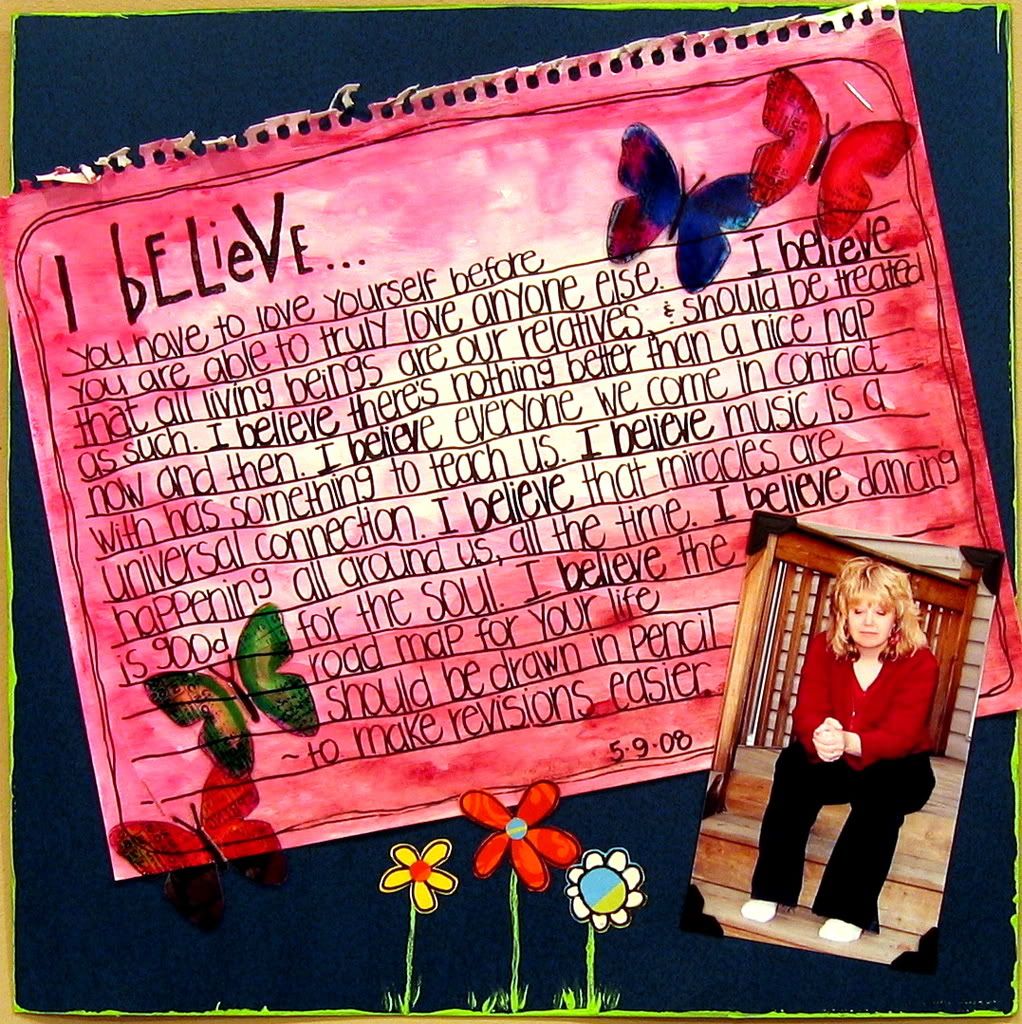 I bELieVE...
you have to love yourself before
you are able to truly love anyone else. I believe
that all living beings are our relatives, & should be treated
as such. I believe there's nothing better than a nice nap
now and then. I believe everyone we come in contact
with has something to teach us. I believe music is a
universal connection. I believe that miracles are
happening all around us, all the time. I believe dancing
is good for the soul. I believe the
road map for your life
should be drawn in pencil
~to make revisions easier.
5.9.08